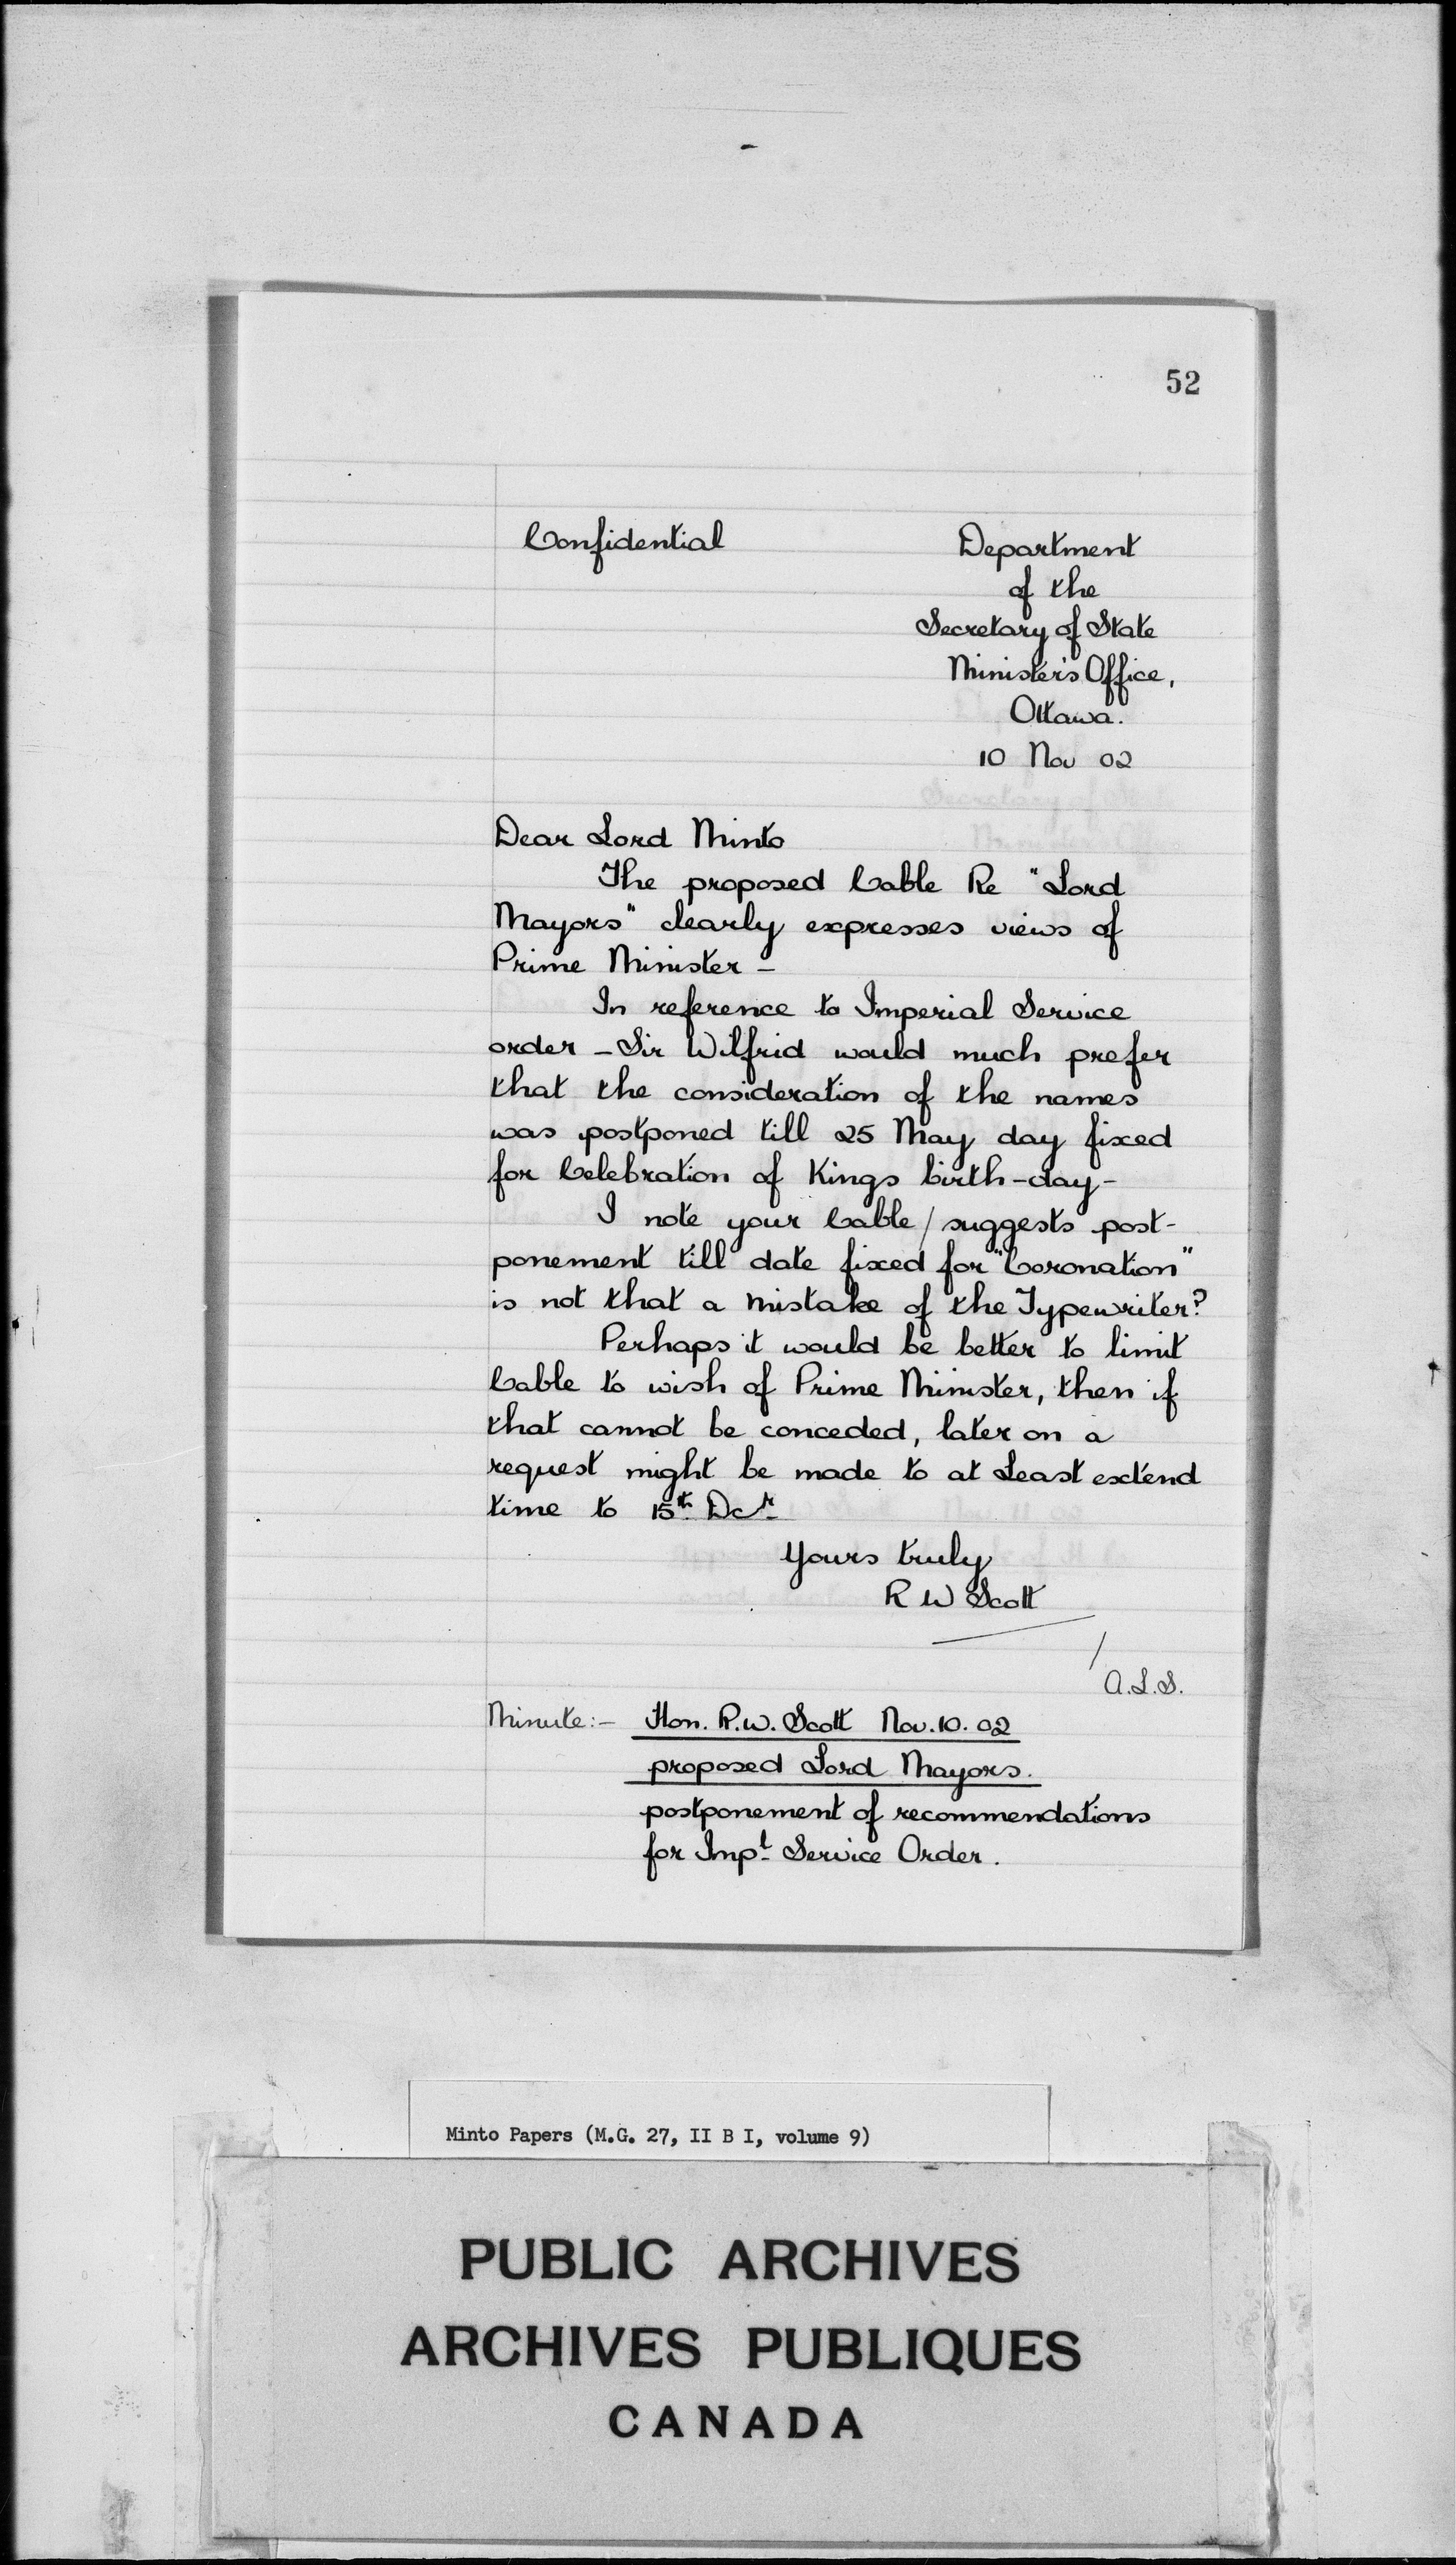 52
Confidential
Department
of the
Secretary of State
Minister's Office,
Ottawa.
10 Nov 02
Dear Lord Minto
The proposed Cable Re "Lord
Mayors" clearly expresses views of
Prime Minister -
In reference to Imperial Service
order - Sir Wilfrid would much prefer
that the consideration of the names
was postponed till 25 May day fixed
for Celebration of Kings birth-day-
I note your Cable / suggests post-
ponement till date fixed for "Coronation"
is not that a mistake of the Typewriter?
Perhaps it would be better to limit
Cable to wish of Prime Minister, then if
that cannot be conceded, later on a
request might be made to at Least extend
time to 15th Dcr
Yours truly
R W Scott
A.L.S.
Minute:- Hon. R.W. Scott Nov. 10. 02
proposed Lord Mayors.
postponement of recommendations
for Impl Service Order.
Minto Papers (M.G. 27, II B I, volume 9)
PUBLIC ARCHIVES
ARCHIVES PUBLIQUES
CANADA